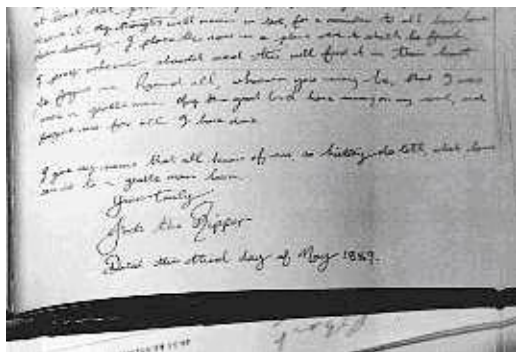 thoughts will remain in tact, for a reminder to all
I place this now in a place were it shall be found
I pray whoever should read this will find it in their heart
to forgive me. Remind all, whoever you may be, that I was
once a gentle man. May the good lord have mercy on my soul, and
forgive me for all I have done
I give my name that all know of me, so history do tell, what love
can do to a gentle man born
Yours truly
Jack the Ripper
Dated this third day of May 1889.